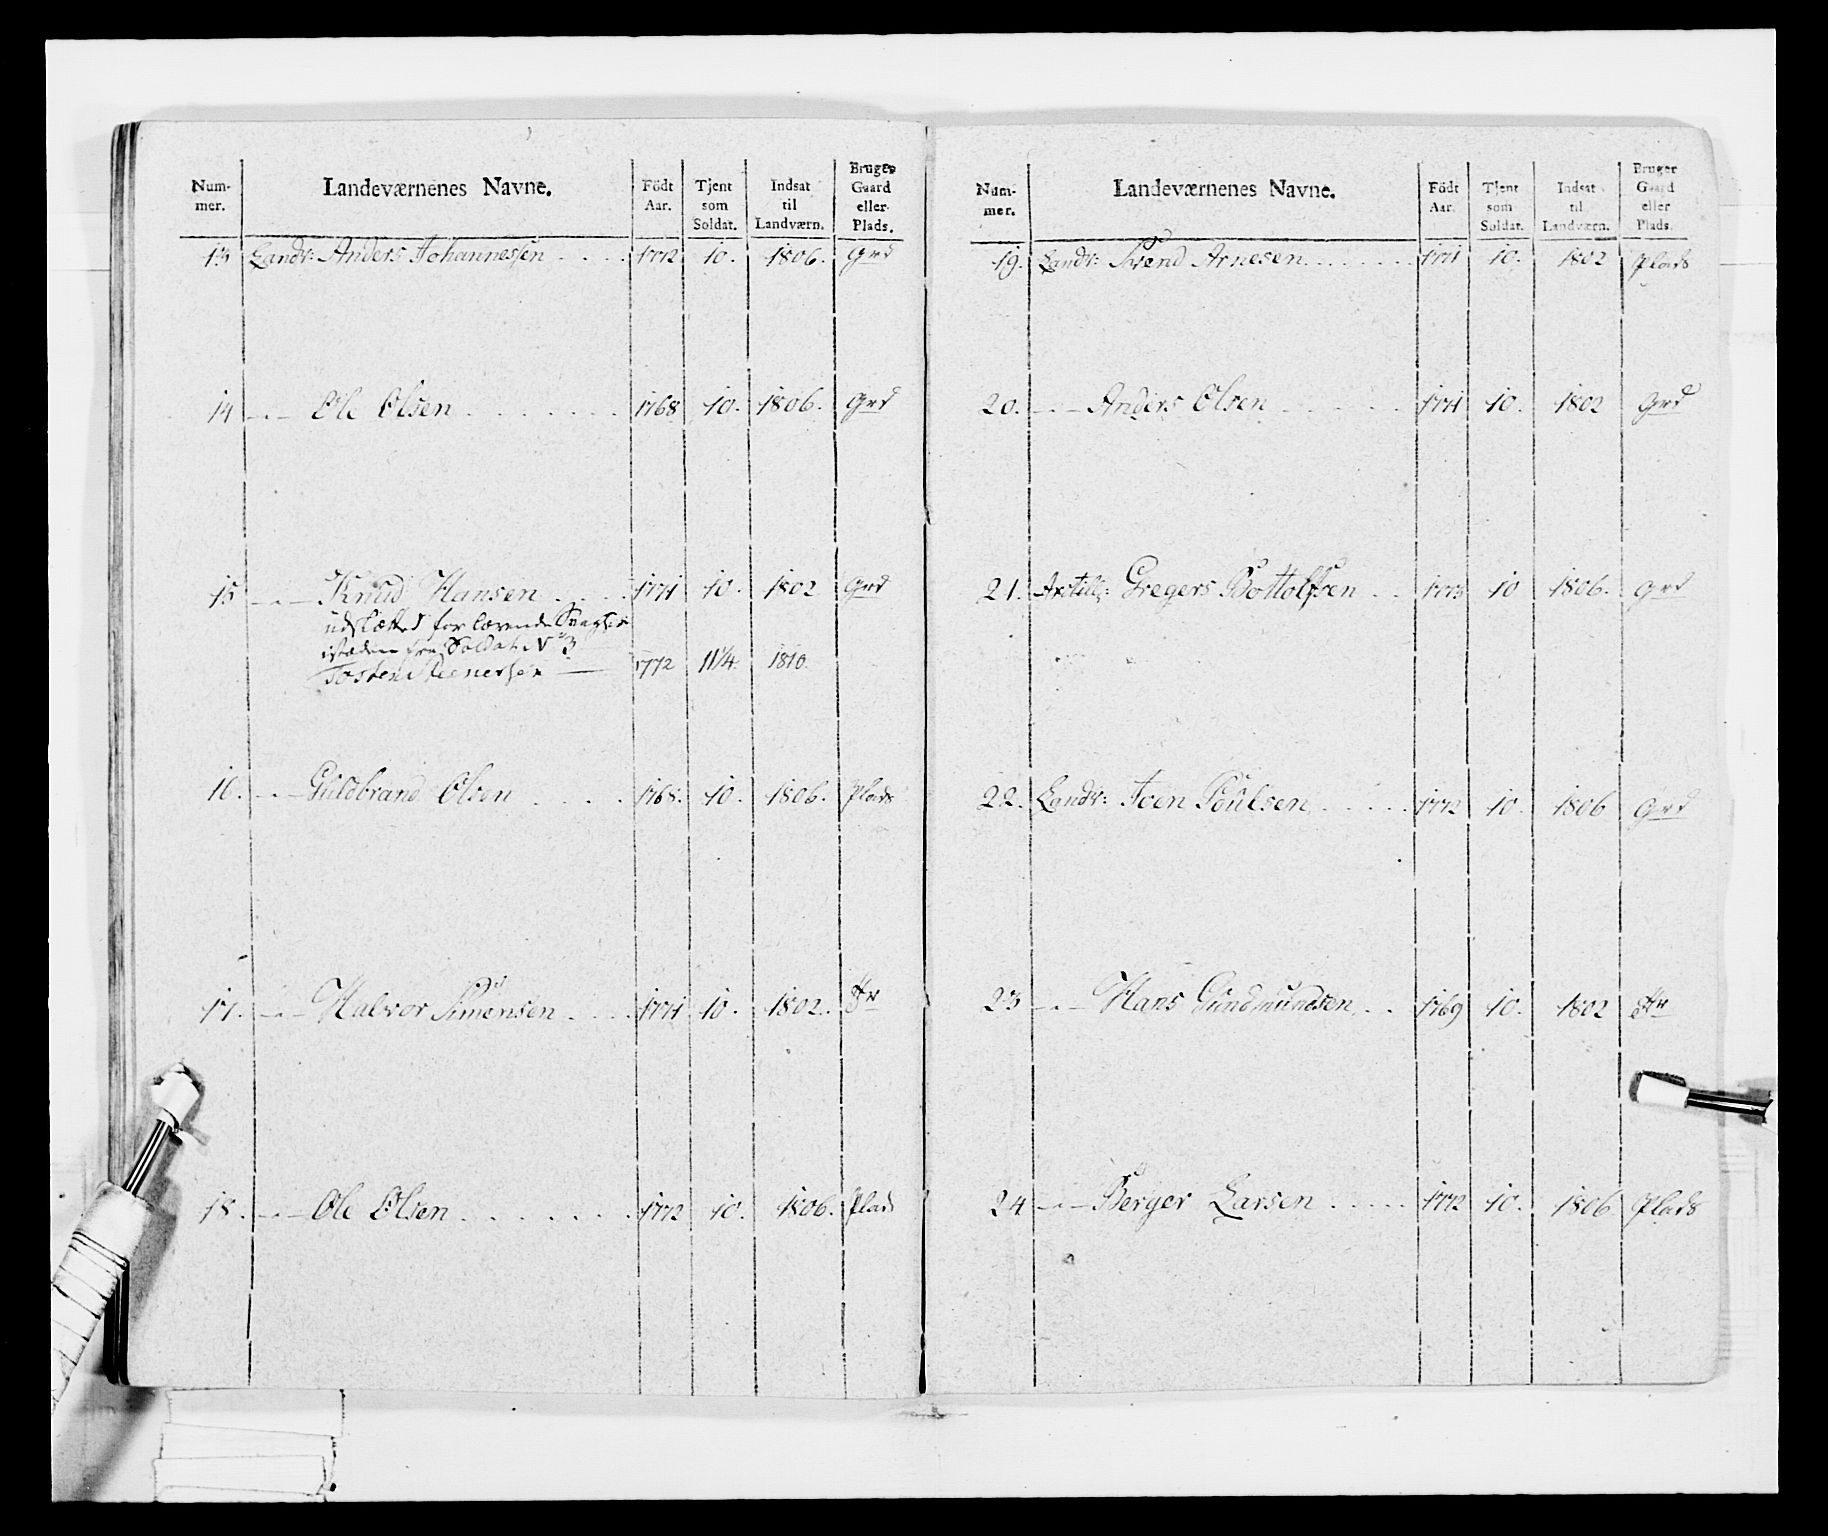 Num-mer. Landeværnenes Navne. Födt Aar. Tjent som Soldat. Indsat til Landværn. Bruger Gaard eller Plads.
13 Landv: Anders Johannessen . . . . 1772 10. 1806. Grd
14 —"— Ole Olsen . . . . . . . 1768 10. 1806. Grd
15 —"— Knud Hansen . . . . 1771 10. 1802 Grd
udslættet for
istæden fra Soldat N 3
Tosten Steenersen — 1772 11¼. 1810.
16. —"— Guldbrand Olsen . . . . 1768. 10. 1806. Plads
17. —"— Halvor Simensen . . . . 1771 10. 1802.
18. —"— Ole Olsen . . . . . . . 1772 10. 1806. Plads
Num-mer. Landeværnenes Navne. Födt Aar. Tjent som Soldat. Indsat til Landværn. Bruger Gaard eller Plads.
19. Landv: Svend Arnesen . . . . . . . 1771 10. 1802 Plads
20. —"— Anders Olsen . . . . . . 1771 10. 1802 Grd
21. Artill: Gregers Bottolfsen . . 1773 10 1806. Grd
22. Landv: Joen Poulsen . . . . . 1772 10. 1806 Grd
23 —"— Hans Gundmundsen . . 1769 10. 1802
24 —"— Berger Larsen . . . . . 1772 10. 1806 Plads